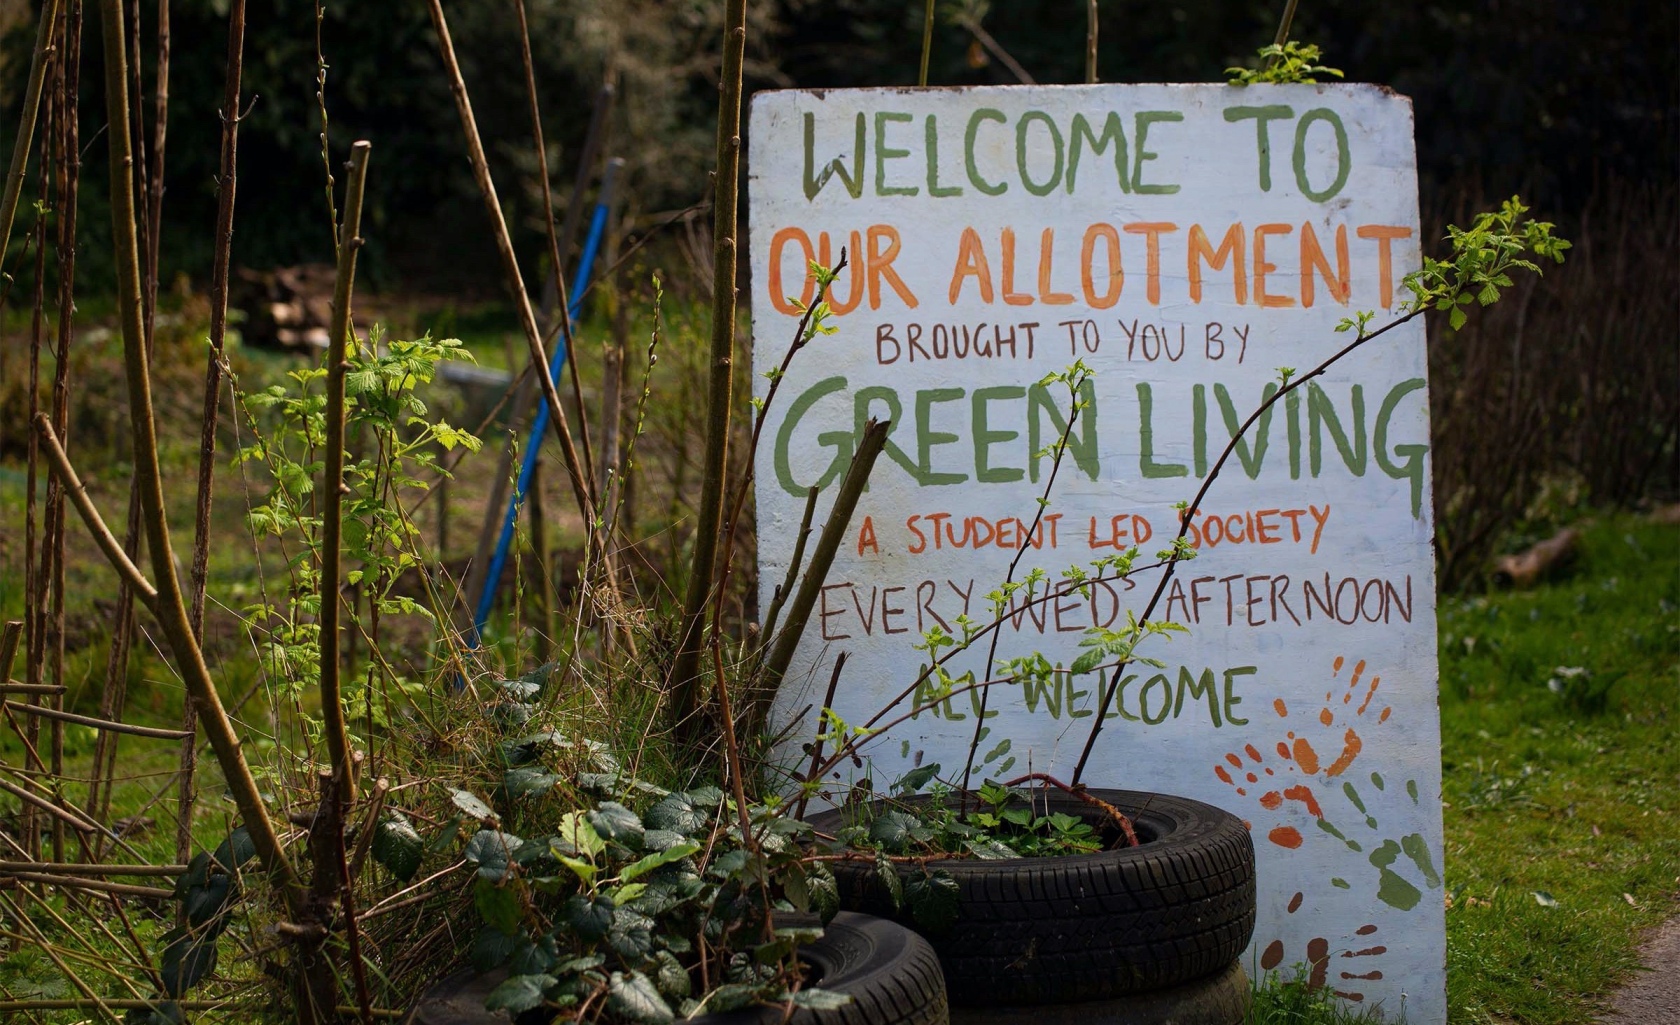 WELCOME TO
OUR ALLOTMENT
BROUGHT TO YOU BY
GREEN LIVING
A STUDENT LED SOCIETY
EVERY WEDS AFTERNOON
ALL WELCOME